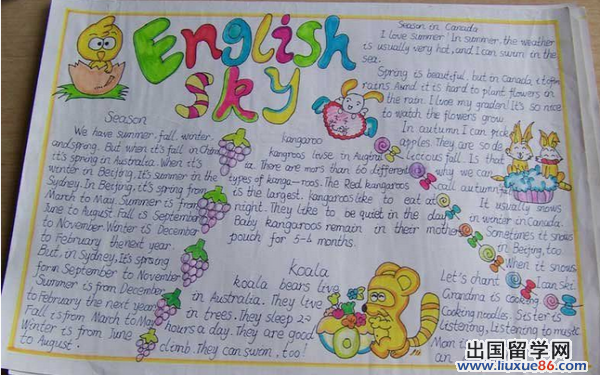 English
sky
Season
We have summer fall. winter.
and spring. But when it's fall in China
it's spring in Australia. When it's
winter in Beijing. It's summer in the
Sydney. In Beijing, it's spring from
March to May. Summer is from
June to August Fall is September
to November. Winter is December
to February the next year.
But, in Sydney. It's spring
from September to November
Summer is from December
to February the next year.
Fall is from March to May
Winter is from June
to August.
kangaroo
There are more than 60 different
types of kanga-roos. The Red kangaroos
is the largest. kangaroos like to eat at
night. They like to be quiet in the day
Baby kangaroos remain in their mother
pouch for 5-6 months.
koala
koala bears live
in Australia. They live
in trees. They sleep
hours a day. They are good
climb. They can swam, too!
Season in Canada
I love summer In summer, the weather
is usually very hot, and I can swim in the
sea.
Spring is beautiful, but in Canada, it often
rains. And it is hard to plant flowers in
the rain. I love my graden. It's so nice
to watch the flowers grow.
In autumn I can pick
apples. They are so de
licious fall. Is that
why we can
call autumn
It usually snows
in winter in Canada.
Sometimes it snows
in Beijing, too.
When it snows
I can ski.
Let's chant
Grandma is cooking
Cooking noodles. Sister is
listening, Listening to music.
Mom
an
出国留学网
www.liuxue86.com